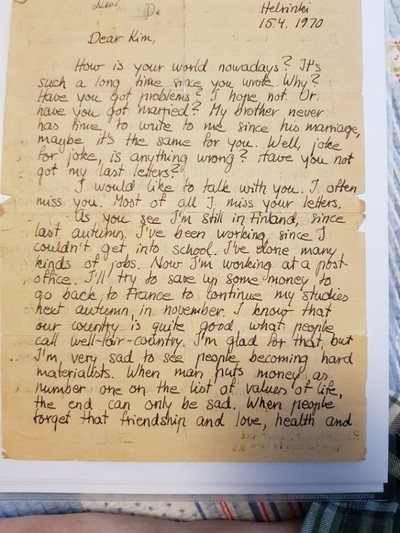 Dear
De
Helsinki
15.4. 1970
Dear Kim,
How is your world nowadays? It's
such a long time since you wrote. Why?
Have you got problems? I hope not. Or
have you got married? My brother never
has time to write to me since his marriage,
maybe it's the same for you. Well, joke
for joke, is anything wrong? Have you not
got my last letters?
I would like to talk with you. I often
miss you. Most of all I miss your letters.
As you see I'm still in Finland, since
last autumn, I've been working, since I
couldn't get into school. I've done many
kinds of jobs. Now I'm working at a post-
office. I'll try to save up some money to
go back to France to continue my studies
next autumn, in november. I know that
our country is quite good, what people
call well-fair-country. I'm glad for that, but
I'm, very sad to see people becoming hard
materialists. When man puts money as
number one on the list of values of life,
the end can only be sad. When people
forget that friendship and love, health and